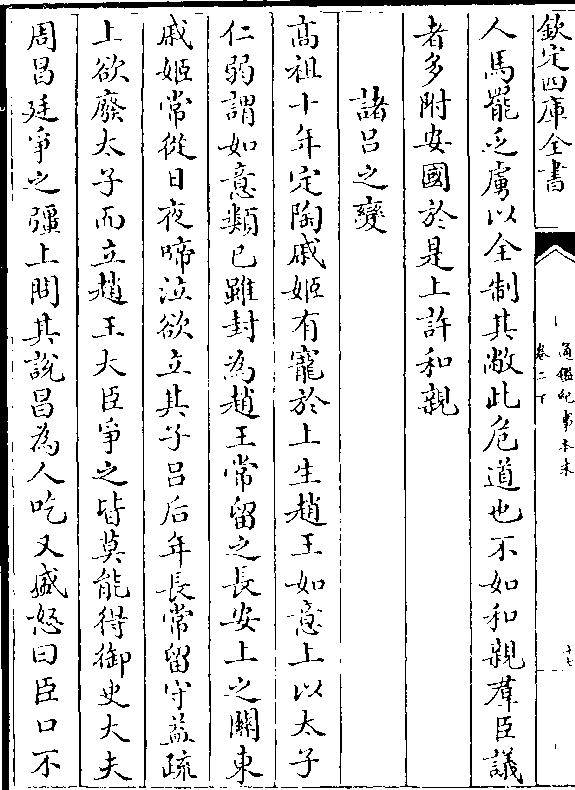 欽定四庫全書
通鑑紀事本末
卷二下
十七
人馬罷乏虜以全制其敝此危道也不如和親羣臣議
者多附安國於是上許和親
諸呂之變
高祖十年定陶戚姬有寵於上生趙王如意上以太子
仁弱謂如意類已雖封為趙王常留之長安上之關東
戚姬常從日夜啼泣欲立其子呂后年長常留守益疏
上欲廢太子而立趙王大臣爭之皆莫能得御史大夫
周昌廷爭之彊上問其說昌為人吃又盛怒曰臣口不